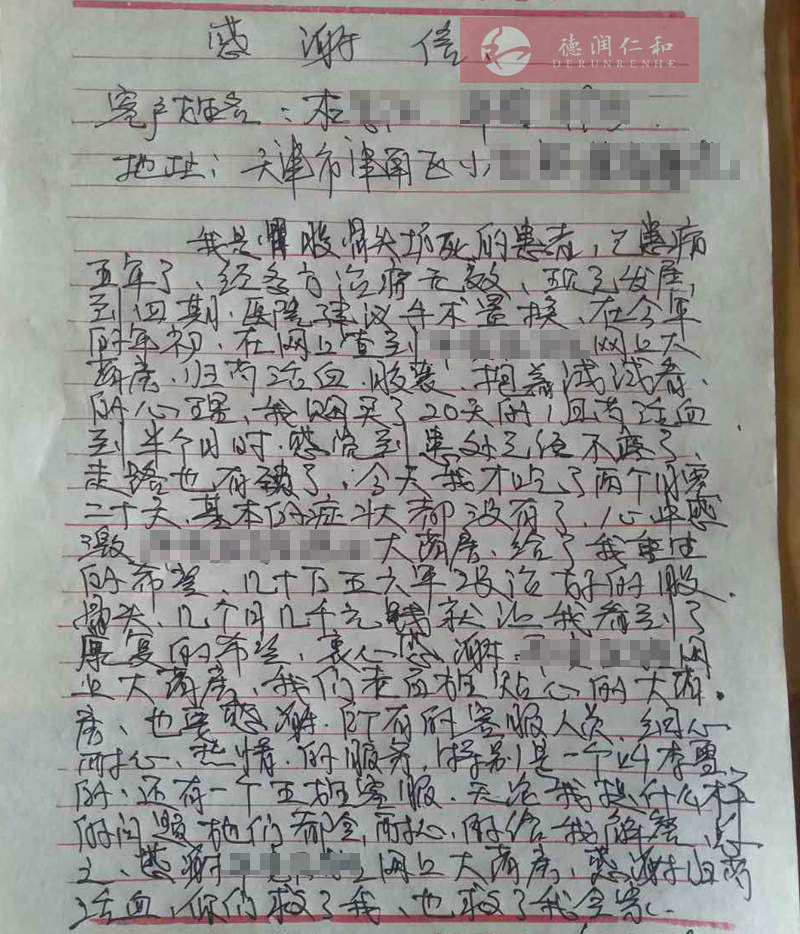 感谢信
德润仁和
DERUNRENHE
客户姓名：
地址：天津市津南区小
我是股骨头坏死的患者，已患病
五年了、经多方治疗无效、现已发展，
到四期，医院建议手术置换，在今年
的年初，在网上查到 网上大
药房，归芍活血胶囊、抱着试试看、
的心理，我购买了20天的归芍活血
到半个月时，感觉到患处已经不疼了、
走路也有劲了；今天我才吃了两个月零
二十天、基本的症状都没有了，心中感
激 大药房、给了我重生
的希望，几十万五六年没治好的股
骨头，几个月几千元钱就让我看到了
康复的希望，衷心感谢 网
上大药房、我们老百姓贴心的大药
房、也要感谢所有的客服人员，细心
耐心、热情的服务，特别是一个叫李
的、还有一个王姓客服、无论我提什么样
的问题她们都会耐心的给我解答，总
之、感谢 网上大药房，感谢归芍
活血，你们救了我、也救了我全家。